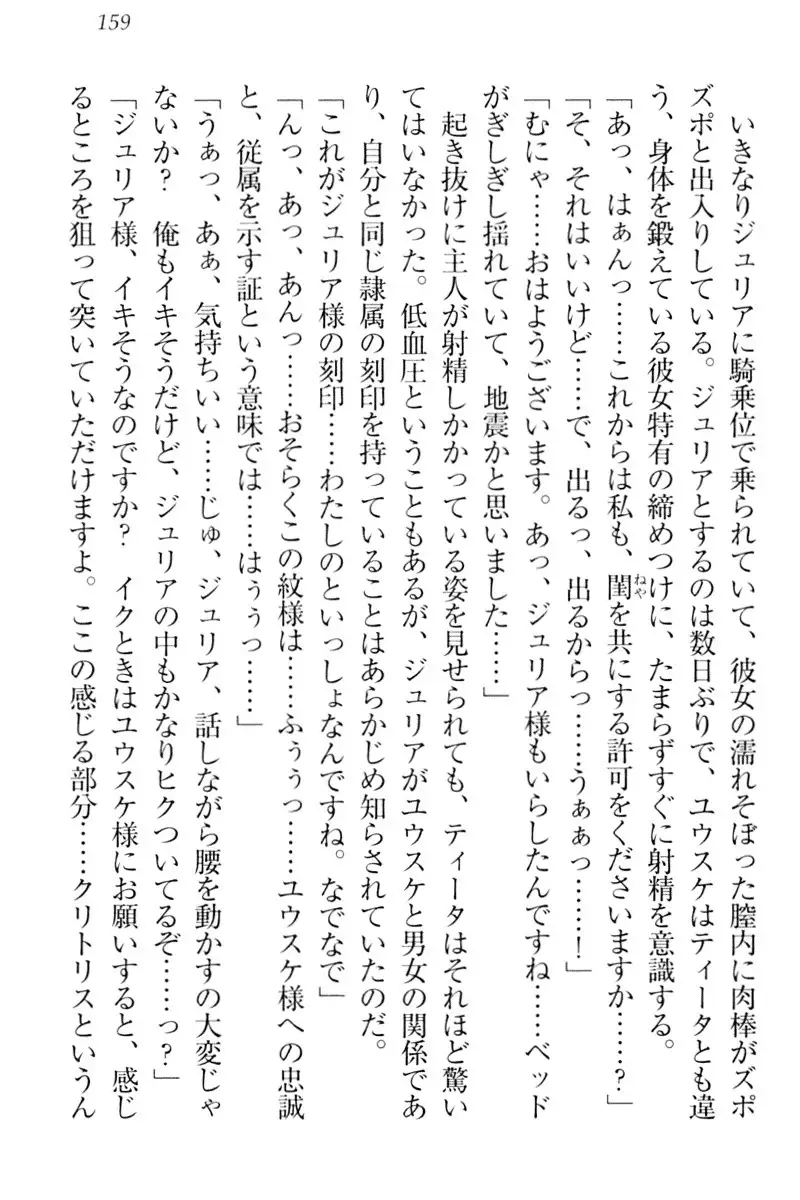 159
いきなりジュリアに騎乗位で乗られていて、彼女の濡れそぼった膣内に肉棒がズポ
ズポと出入りしている。ジュリアとするのは数日ぶりで、ユウスケはティータとも違
う、身体を鍛えている彼女特有の締めつけに、たまらずすぐに射精を意識する。
「あっ、はぁんっ……これからは私も、閨(ねや)を共にする許可をくださいますか……?」
「そ、それはいいけど……で、出るっ、出るからっ……うぁぁっ……!」
「むにゃ……おはようございます。あっ、ジュリア様もいらしたんですね……ベッド
がぎしぎし揺れていて、地震かと思いました……」
起き抜けに主人が射精しかかっている姿を見せられても、ティータはそれほど驚い
てはいなかった。低血圧ということもあるが、ジュリアがユウスケと男女の関係であ
り、自分と同じ隷属の刻印を持っていることはあらかじめ知らされていたのだ。
「これがジュリア様の刻印……わたしのといっしょなんですね。なでなで」
「んっ、あっ、あんっ……おそらくこの紋様は……ふぅぅっ……ユウスケ様への忠誠
と、従属を示す証という意味では……はぅぅっ……」
「うぁっ、あぁ、気持ちいい……じゅ、ジュリア、話しながら腰を動かすの大変じゃ
ないか? 俺もイキそうだけど、ジュリアの中もかなりヒクついてるぞ……っ?」
「ジュリア様、イキそうなのですか? イクときはユウスケ様にお願いすると、感じ
るところを狙って突いていただけますよ。ここの感じる部分……クリトリスというん